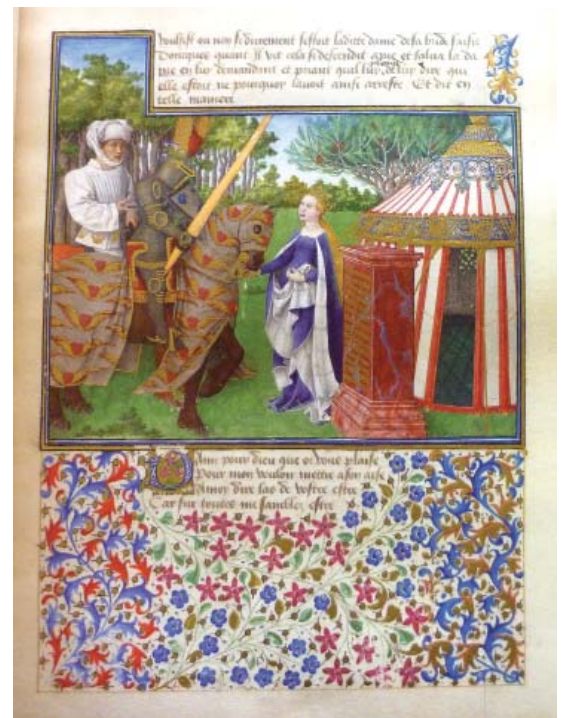 voulsist ou non si durement sestoit laditte dame de sa bride saisie
Doncques quant il vit cela si descendit apie et salua la da
me en luy demandant et priant quil luy de luy dire qui
elle estoit ne pourquoy lavoit ainsi arreste Et dit en
telle maniere
Dame pour dieu que or vous plaise
Pour mon vouloir mettre a son aise
A moy dire las de vostre estre
Car sur toutes me semblez estre